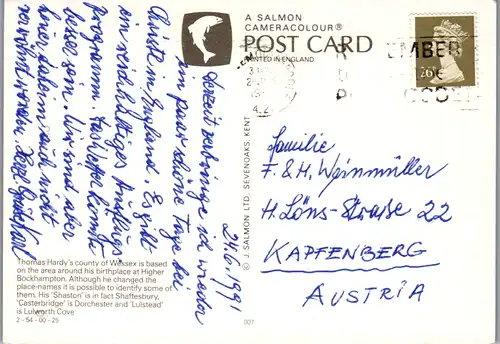 A SALMON
CAMERACOLOUR®
POST CARD
PRINTED IN ENGLAND
MBER
26P
24.6.1991
Derzeit verbringe ich wieder
ein paar schöne Tage bei
Christl in England. Es gibt
ein reichhaltiges Ausflugs-
programm. Das Wetter könnte
besser sein. Wir sind aber
daheim auch nicht
verwöhnt worden.
Familie
F. & H. Weinmüller
H. Löns-Straße 22
KAPFENBERG
AUSTRIA
© J. SALMON LTD., SEVENOAKS, KENT
Thomas Hardy's county of Wessex is based
on the area around his birthplace at Higher
Bockhampton. Although he changed the
place-names it is possible to identify some of
them. His 'Shaston' is in fact Shaftesbury,
'Casterbridge' is Dorchester and 'Lulstead'
is Lulworth Cove
2-54-00-25
001